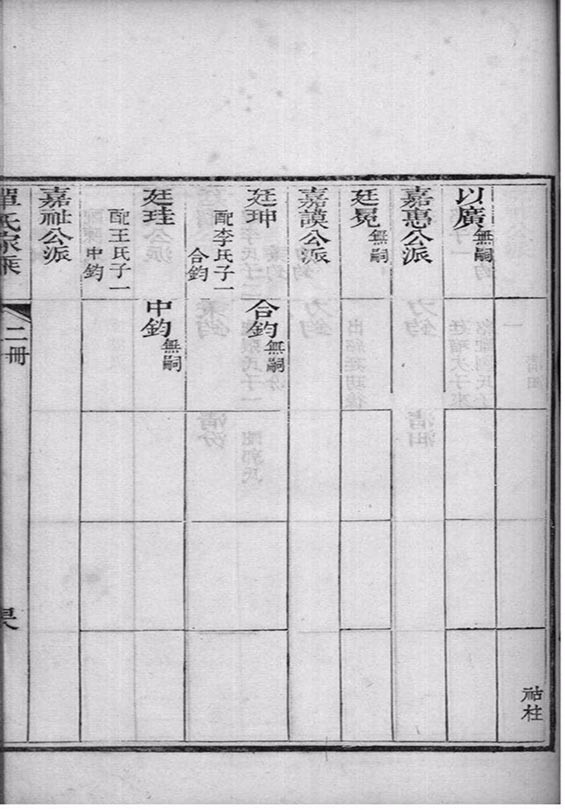 祜柱
以廣 無嗣
嘉惠公派
廷冕 無嗣
嘉謨公派
廷珅 合鈞 無嗣
配李氏子一
合鈞
廷珪 中鈞 無嗣
配王氏子一
中鈞
嘉祉公派
單氏家乘 二冊